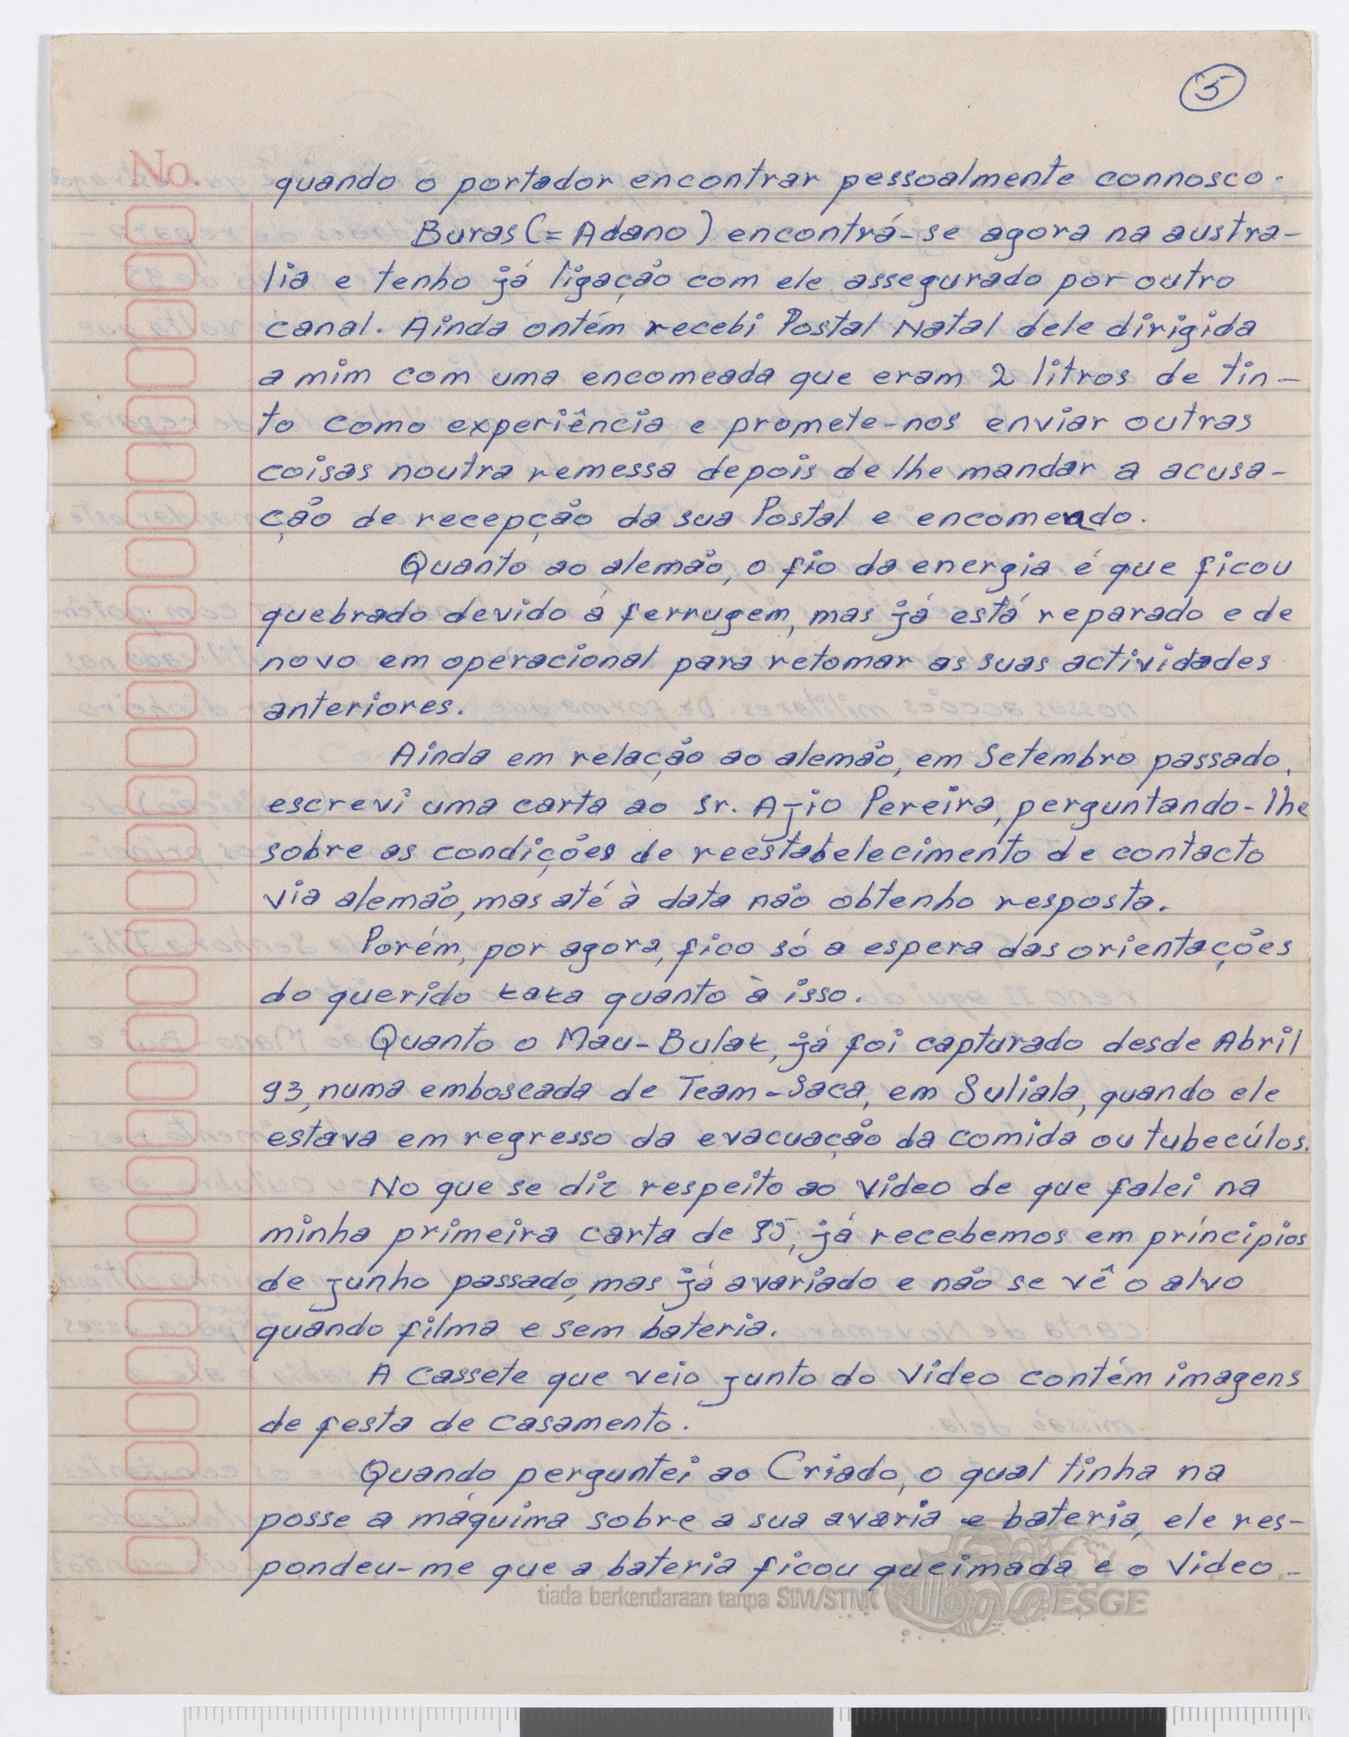 5
No.
quando o portador encontrar pessoalmente connosco.
Buras (= Adano) encontrá-se agora na austra-
lia e tenho já ligação com ele assegurado por outro
canal. Ainda ontém recebi Postal Natal dele dirigida
a mim com uma encomeada que eram 2 litros de tin-
to como experiência e promete-nos enviar outras
coisas noutra remessa depois de lhe mandar a acusa-
ção de recepção da sua Postal e encomendo.
Quanto ao alemão, o fio da energia é que ficou
quebrado devido á ferrugem, mas já está reparado e de
novo em operacional para retomar as suas actividades
anteriores.
Ainda em relação ao alemão, em Setembro passado,
escrevi uma carta ao Sr. Ajio Pereira, perguntando-lhe
sobre as condições de reestabelecimento de contacto
via alemão, mas até à data não obtenho resposta.
Porém, por agora, fico só a espera das orientações
do querido kaka quanto à isso.
Quanto o Mau-Bulak, já foi capturado desde Abril
93, numa emboscada de Team-Saca, em Suliala, quando ele
estava em regresso da evacuação da comida ou tubecúlos.
No que se diz respeito ao video de que falei na
minha primeira carta de 95, já recebemos em príncipios
de junho passado, mas já avariado e não se vê o alvo
quando filma e sem bateria.
A cassete que veio junto do Video contém imagens
de festa de casamento.
Quando perguntei ao Criado, o qual tinha na
posse a máquima sobre a sua avaria e bateria, ele res-
pondeu-me que a bateria ficou queimada e o Video -
tiada berkendaraan tanpa SIM/STNK
ESGE